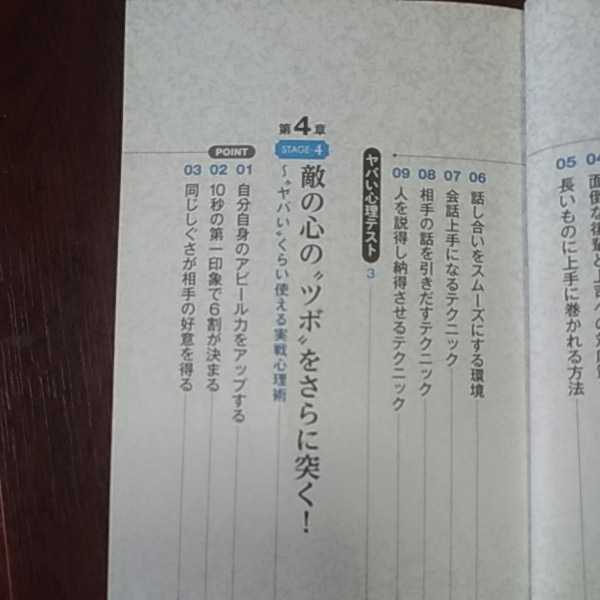 05 長いものに上手に巻かれる方法
06 話し合いをスムーズにする環境
07 会話上手になるテクニック
08 相手の話を引きだすテクニック
09 人を説得し納得させるテクニック
ヤバい心理テスト 3
第4章
STAGE-4
敵の心の〝ツボ〟をさらに突く!
〜〝ヤバい〟くらい使える実戦心理術
POINT
01 自分自身のアピール力をアップする
02 10秒の第一印象で6割が決まる
03 同じしぐさが相手の好意を得る